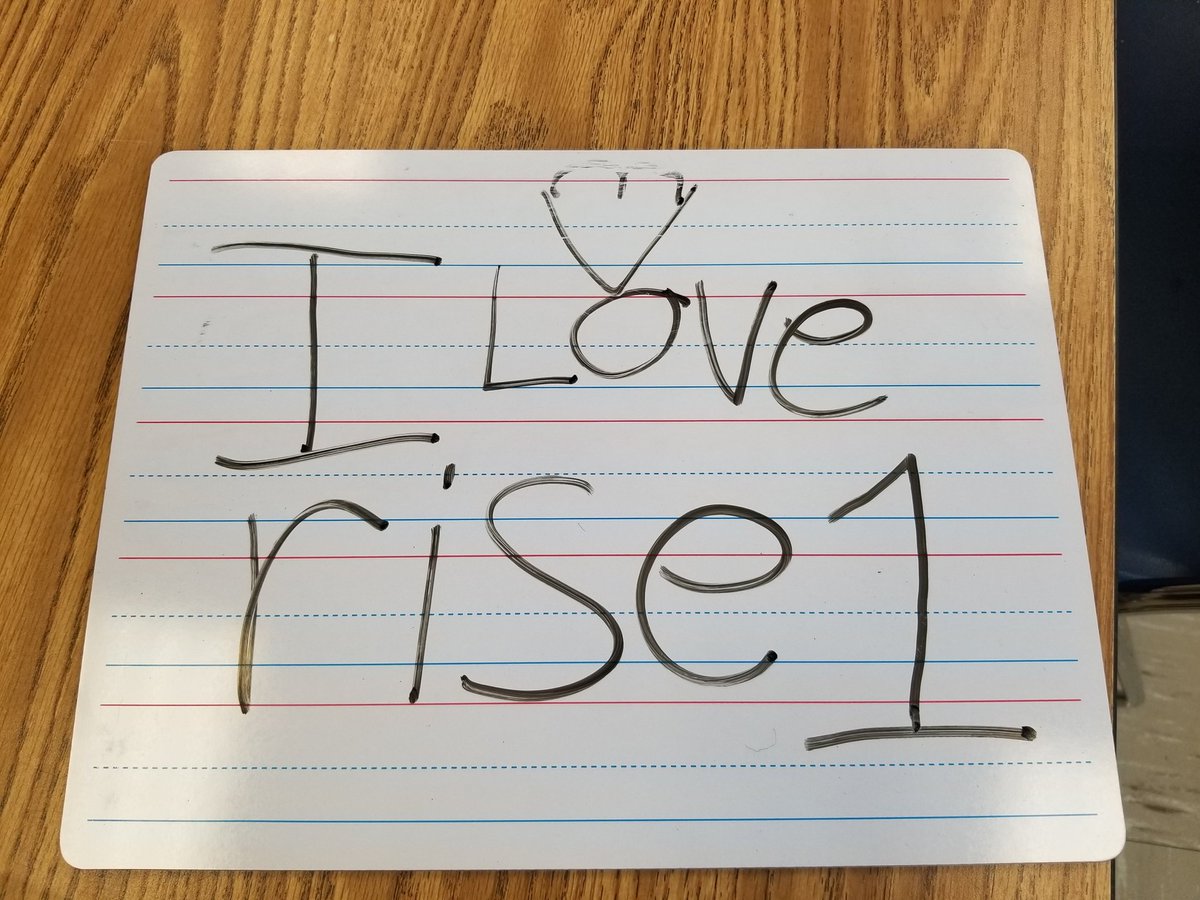 I Love
rise1